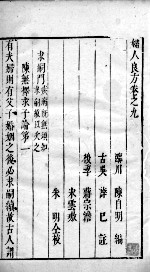 婦人良方卷之九
臨川 陳自明 編
古吳 薛己 註
後學 蔣宗澹
朱雲燾
朱明 仝校
求嗣門
陳無擇求子論第一
有夫婦則有父子婚姻之後必求嗣續故古人謂